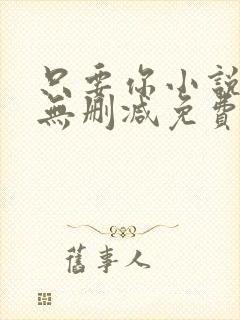 只要你小說
無刪減免費
舊事人